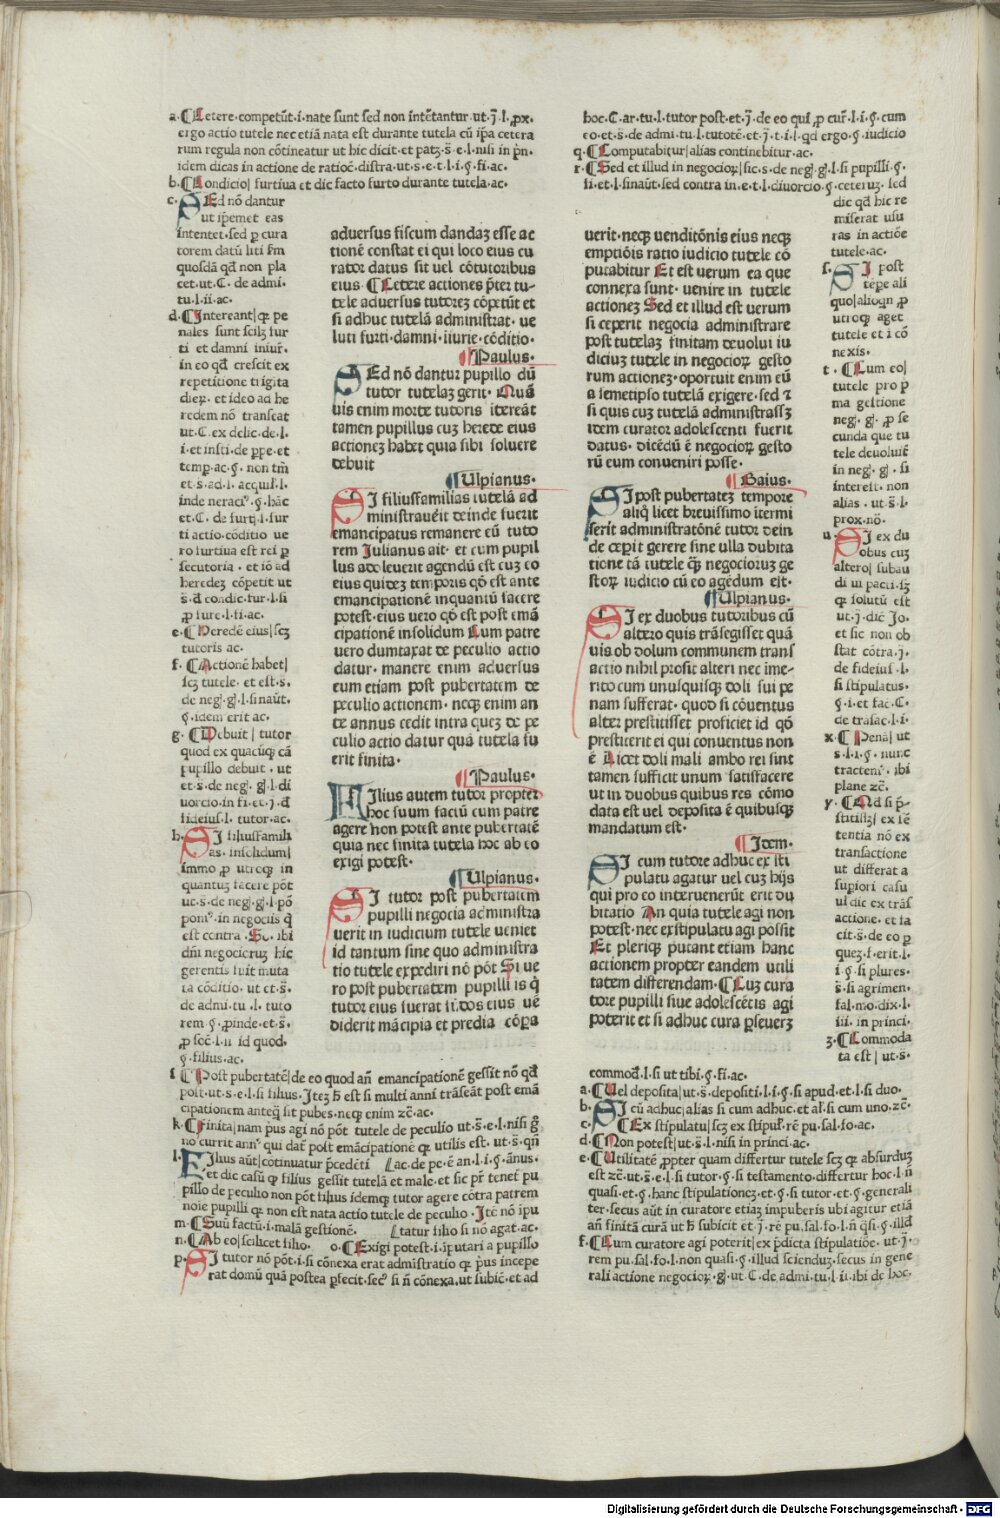 a. ¶ Cetere. competūt. i. nate sunt sed non intētantur. ut. j. l. ꝓx.
ergo actio tutele nec etiā nata est durante tutela cū ip̄a cetera
rum regula non cōtineatur ut hic dicit. et
idem dicas in actione de ratioē. distra. ut. s. e. t. l. i. §. fi. ac.
b. ¶ Condicio| furtiua et dic facto furto durante tutela. ac.
c. SEd nō dantur
ut ip̄emet eas
intentet. sed ꝑ cura
torem datū liti scd'm
quosdā qd̄ non pla
cet. ut. C. de admi.
tu. l. ii. ac.
d. ¶ Intereant| qꝛ pe
nales sunt scilꝫ fur
ti et damni iniur̄.
in eo qd̄ crescit ex
repetitione
dieꝝ. et ideo ad he
redem nō transeat
ut. C. ex delic. de. l.
i. et insti. de ꝑpe. et
temꝑ. ac. §. non tm̄
et. s. ad. l. acquil. l.
inde . §. hāc
et. C. de l. fur
ti actio. cōditio ue
ro furtiua est rei ꝑ
secutoria. et iō ad
heredeꝫ cōpetit ut
s. d̄ condic. fur. l. si
ꝓ fure. l. fi. ac.
e. ¶ Heredē eius| scꝫ
tutoris ac.
f. ¶ Actionē habet|
scꝫ tutele. et est. s.
de neg'. g'. l. si naūt.
§. idem erit ac.
g. ¶ Debuit| tutor
quod ex quacūqꝫ cā
pupillo debuit. ut
et. s. de neg'. g'. l. di
uorcio. in fi. et. j. d̄
fideius. l. tutor. ac.
h. SI filiusfamili
as. insolidum|
immo ꝓ utroqꝫ in
quantuꝫ facere pōt
ut. s. de neg'. g'. l. pō
pon'. in negociis q̄
est contra. So. ibi
dn̄i negocioruꝫ hic
gerentis fuit muta
ta cōditio. ut et. s.
de admi. tu. l. tuto
rem §. ꝓinde. et. s.
ꝓ soc̄. l. ii id quod.
§. filius. ac.
adversus fiscum dandaꝫ esse ac
tionē constat ei qui loco eius cu
rator datus sit uel cōtutoribus
eius. ¶ Cetere actiones p̄ter tu-
tele aduersus tutoreꝫ cōpetūt et
si adhuc tutelā administrat. ue
luti furti. damni. iiurie. cōditio.
¶ Paulus.
SEd nō dantur pupillo dū
tutor tutelaꝫ gerit. Quā
uis enim morte tutoris itereāt
tamen pupillus cuꝫ herede eius
actioneꝫ habet quia sibi soluere
debuit
¶ Ulpianus.
SI filiusfamilias tutelā ad
ministrauerit deinde fuerit
emancipatus remanere eū tuto
rem Julianus ait. et cum pupil
lus adoleuerit agendū est cuꝫ eo
eius quideꝫ temporis qd̄ est ante
emancipationē inquantū facere
potest. eius uero qd̄ est post emā
cipationē insolidum Cum patre
uero dumtaxat de peculio actio
datur. manere enim adversus
eum etiam post pubertatem de
peculio actionem. neqꝫ enim an
te annus cedit intra queꝫ de pe
culio actio datur quā tutela fu
erit finita.
¶ Paulus.
FIlius autem tutor propter
hoc suum factū cum patre
agere non potest ante pubertatē
quia nec finita tutela hoc ab eo
exigi potest.
¶ Ulpianus.
SI tutor post pubertatem
pupilli negocia administra
uerit in iudicium tutele ueniet
id tantum sine quo administra
tio tutele expediri nō pōt Si ue
ro post pubertatem pupilli is q̄
tutor eius fuerat seruos eius uē
diderit mācipia et predia cōpa
i. ¶ Post pubertatē| de eo quod an̄ emancipationē gessit nō qd̄
post. ut. s. e. l. si filius. Iteꝫ h̄ est si multi anni trāseāt post emā
cipationem anteq̄ sit pubes. neqꝫ enim zc̄. ac.
k. ¶ Finita| nam p̄us agi nō pōt tutele de peculio ut. s. e. l. nisi §
no currit ann' qui dat' post emācipationē qꝛ utilis est. ut. s. qn̄
l. FIlius aūt| cōtinuatur p̄cedēti [ac. de pe. ē an. l. i. §. ānus.
et dic casū qꝛ filius gessit tutelā et male. et sic pr̄ tenet pu
pillo de peculio non pōt filius idemqꝫ tutor agere cōtra patrem
noīe pupilli qꝛ non est nata actio tutele de peculio. Itē nō īpu
m. ¶ Suū factū. i. malā gestionē. [tatur filio si nō agat. ac.
n. ¶ Ab eo| scilicet filio. o. ¶ Exigi potest. i. iputari a pupillo
p. SI tutor nō pōt. i. si cōnexa erat admīstratio qꝛ p̄us incepe
rat domū quā postea ꝑfecit. sec' si n̄ cōnexa. ut subic̄. et ad
hoc. C. ar. tu. l. tutor post. et. j. de eo qui ꝓ cur'. l. i. §. cum
eo et. s. de admi. tu. l. tutorē. et. j. t. i. l. qd ergo. §. iudicio
q. ¶ Computabitur| alias continebitur. ac.
r. ¶ Sed et illud in negocioꝝ| sic. s. de neg'. g'. l. si pupilli. §.
si. et. l. si naūt. sed contra in. e. t. l. diuorcio. §. ceteruꝫ. sed
dic qd̄ hic re
miserat usu
ras in actiōe
tutele. ac.
s. SI post
tēpe ali
quo| alioqn ꝓ
utroqꝫ aget
tutele et i cō
nexis.
t. ¶ Cum eo|
tutele pro p̄
ma gestione
neg'. g'. ꝓ se
cunda que tu
tele deuoluit̄
in neg'. g'. si
interest. non
alias. ut. s. l.
prox. nō.
u. SI ex du
obus cuꝫ
altero| subau
di ui pacti. sꝫ
qꝛ solutū est
ut. j. dic Jo.
et sic non ob
stat cōtra. j.
de fideius. l.
si stipulatus.
§. i. et fac. C.
de trāsac. l. i.
x. ¶ Pena| ut
s. l. i. §. nunc
tractem'. ibi
plane zc̄.
y. ¶ Qd si p̄-
stitisꝫ| ex sē
tentia nō ex
transactione
ut differat a
supiori casu
ul dic ex trās
actione. et fa
cit. s. de eo ꝑ
queꝫ f. erit. l.
i. §. si plures.
s. si agrimen.
fal. mo. dix. l.
iii. in princi.
z. ¶ Commoda
ta est| ut. s.
uerit. neqꝫ venditōnis eius neqꝫ
emptiōis ratio iudicio tutele cō
putabitur Et est uerum ea que
connexa sunt. uenire in tutele
actioneꝫ Sed et illud est uerum
si ceperit negocia administrare
post tutelaꝫ finitam deuolui iu
diciuꝫ tutele in negocioꝝ gesto
rum actioneꝫ. oportuit enim eū
a semetipso tutelā exigere. sed ⁊
si quis cuꝫ tutelā administrassꝫ
idem curator adolescenti fuerit
datus. dicēdū ē negocioꝝ gesto
rū eum conueniri posse.
¶ Gaius.
SI post pubertateꝫ tempore
aliqͦ licet breuissimo itermi
serit administratōnē tutor dein
de cepit gerere sine ulla dubita
tione tā tutele qͣꝫ negocioruꝫ ge
stoꝝ iudicio cū eo agēdum est.
¶ Ulpianus.
SI ex duobus tutoribus cū
altero quis trāsegisset quā
uis ob dolum communem trans
actio nihil prosit alteri nec ime-
rito cum unusquisqꝫ doli sui pe
nam sufferat. quod si cōuentus
alter prestitisset proficiet id qd̄
prestiterit ei qui conuentus non
ē Licet doli mali ambo rei sint
tamen sufficit unum satisfacere
ut in duobus quibus res cōmo
data est uel deposita ē quibusqꝫ
mandatum est.
¶ Idem.
SI cum tutore adhuc ex sti
pulatu agatur uel cuꝫ hijs
qui pro eo interuenerūt erit du
bitatio An quia tutele agi non
potest. nec exstipulatu agi possit
Et pleriqꝫ putant etiam hanc
actionem propter eandem utili
tatem differendam. ¶ Cuꝫ cura
tore pupilli siue adolescētis agi
poterit et si adhuc cura ꝑseueꝝ
commod̄. l. si ut tibi. §. fi. ac.
a. ¶ Uel deposita| ut. s. depositi. l. i. §. si apud. et. l. si duo.
b. SI cū adhuc| alias si cum adhuc. et al'. si cum uno. zc̄.
c. ¶ Ex stipulatu| scꝫ ex stipul'. rē pu. sal. fo. ac.
d. ¶ Non potest| ut. s. l. nisi in princi. ac.
e. ¶ Utilitatē. ꝓpter quam differtur tutele scꝫ qꝛ absurduꝫ
est zc̄. ut. s. e. l. si tutor. §. si testamento. differtur hoc. l. n̄
quasi. et. §. hanc stipulationeꝫ. et. §. si tutor. et. §. generali
ter. secus aūt in curatore etiaꝫ impuberis ubi agitur etiā
an̄ finitā curā ut h̄ subicit et. j. rē pu. sal. fo. l. n̄ qͣsi. §. illd
f. ¶ Cum curatore agi poterit| ex p̄dicta stipulatiōe. ut. j.
rem pu. sal. fo. l. non quasi. §. illud sciendum. secus in gene
rali actione negocioꝝ. g'. ut. C. de admi. tu. l. ii. ibi de hoc.
Digitalisierung gefördert durch die Deutsche Forschungsgemeinschaft - DFG